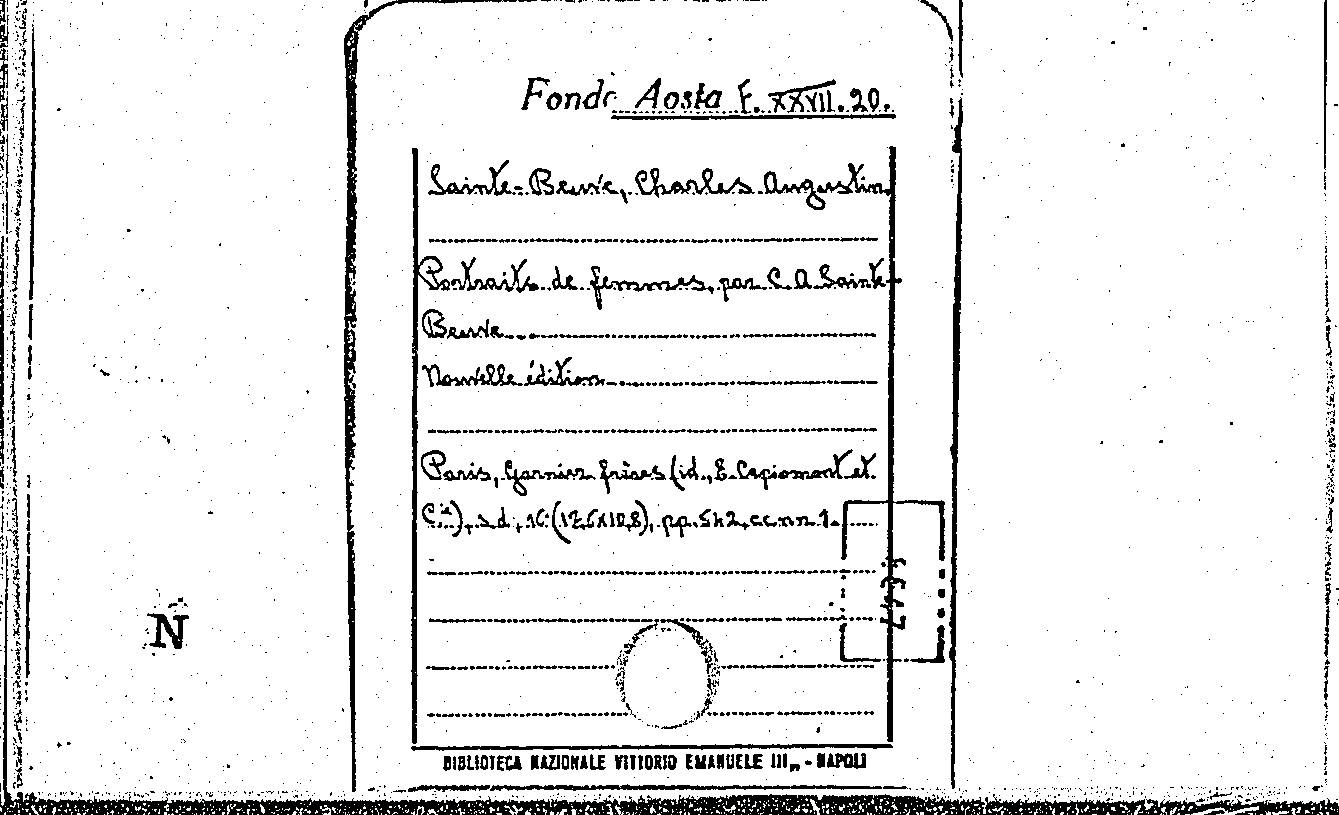 Fondo Aosta F. XXVII. 20.
Sainte-Beuve, Charles Augustin.
Portraits de femmes, par C. A Sainte-
Beuve
Nouvelle édition
Paris, Garnier frères (id., E. Capiomont et
Cie), s.d., 16° (17,5x10,8), pp. 542, cc. nn 1.
N
BIBLIOTECA NAZIONALE VITTORIO EMANUELE III„ - NAPOLI